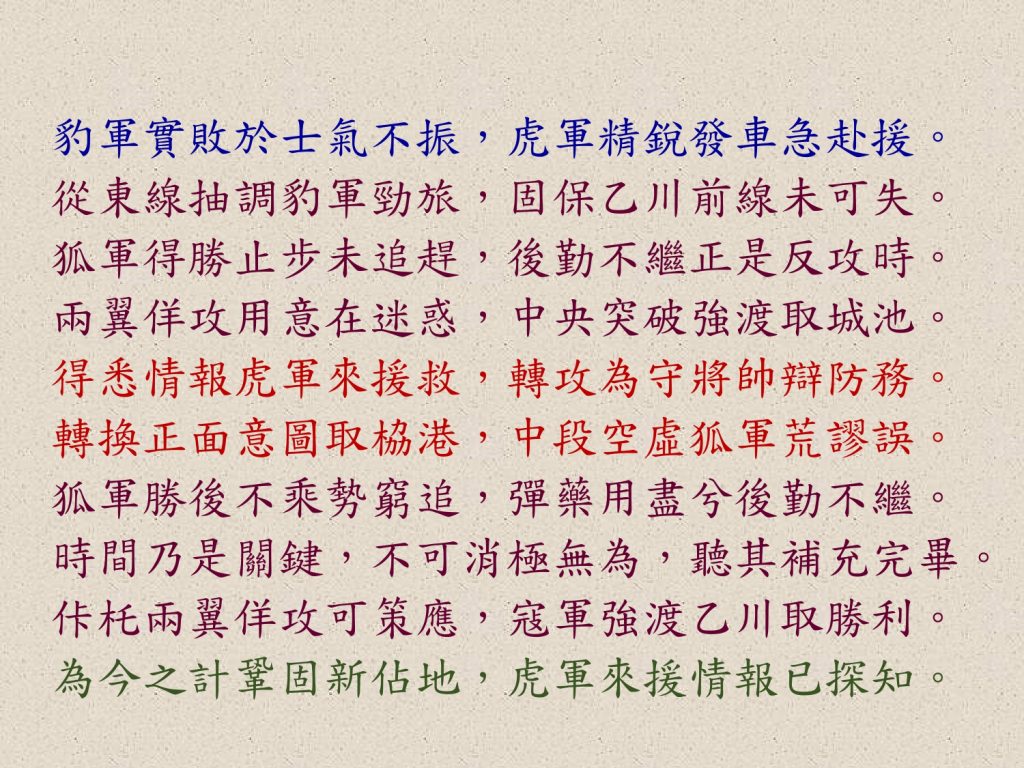 豹軍實敗於士氣不振，虎軍精銳發車急赴援。
從東線抽調豹軍勁旅，固保乙川前線未可失。
狐軍得勝止步未追趕，後勤不繼正是反攻時。
兩翼佯攻用意在迷惑，中央突破強渡取城池。
得悉情報虎軍來援救，轉攻為守將帥辯防務。
轉換正面意圖取栛港，中段空虛狐軍荒謬誤。
狐軍勝後不乘勢窮追，彈藥用盡兮後勤不繼。
時間乃是關鍵，不可消極無為，聽其補充完畢。
佧杔兩翼佯攻可策應，寇軍強渡乙川取勝利。
為今之計鞏固新佔地，虎軍來援情報已探知。